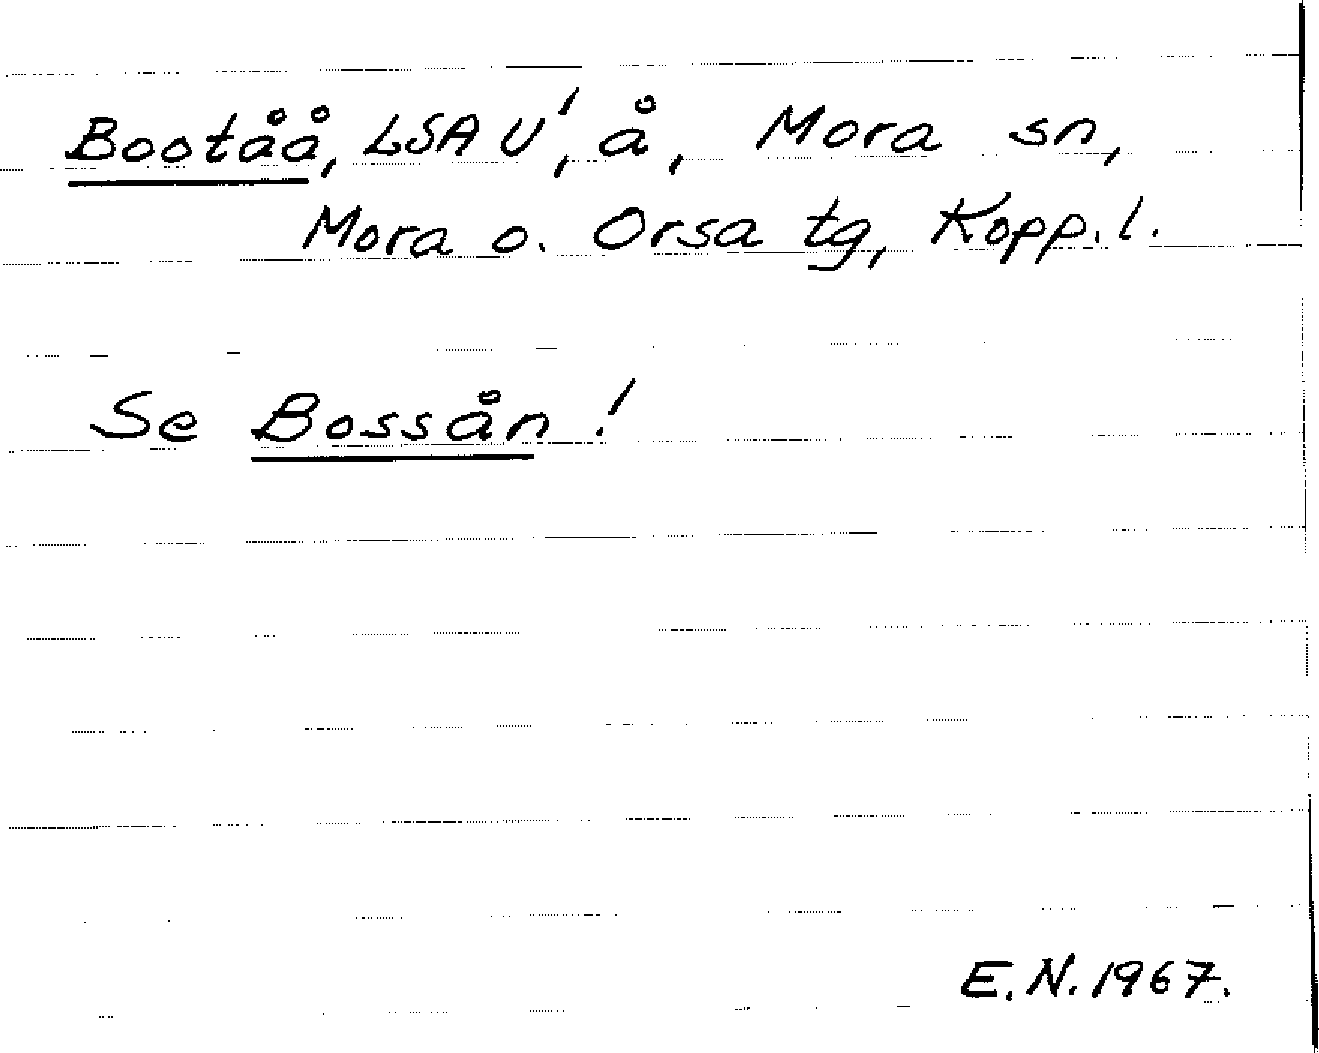 Bootåå, LSA U', å, Mora sn,
Mora o. Orsa tg, Kopp. l.
Se Bossån!
E.N. 1967.